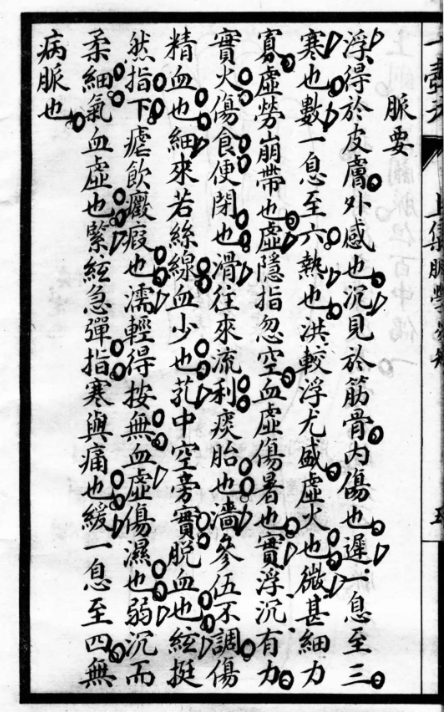 脈要
浮得於皮膚外感也沉見於筋骨內傷也遲一息至三
寒也數一息至六熱也洪較浮尤盛虛火也微甚細力
寡虛勞崩帶也虛隱指忽空血虛傷暑也實浮沉有力
實火傷食便閉也滑往來流利痰胎也濇參伍不調傷
精血也細來若絲線血少也芤中空旁實脫血也絃挺
然指下瘧飲癥瘕也濡輕得按無血虛傷濕也弱沉而
柔細氣血虛也緊絃急彈指寒與痛也緩一息至四無
病脈也